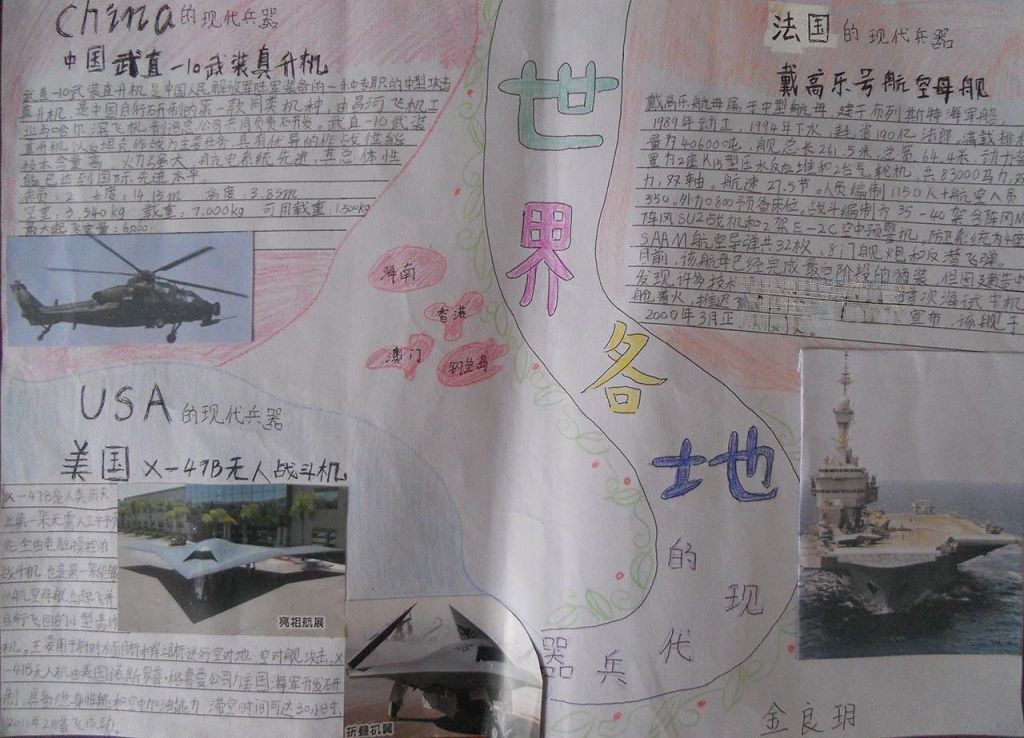 China的现代兵器
中国武直-10武装直升机
武直-10武装直升机是中国人民解放军陆军装备的一种专职的中型攻击
直升机,是中国自行研制的第一款同类机种,由昌河飞机工
业与哈尔滨飞机制造公司共同负责开发。武直-10武装
直升机以反坦克作战为主要任务,具有优异的作战性能
技术含量高,火力强大,航电系统先进,其总体性
能已达到国际先进水平。
乘员:2 长度:14.15m 高度:3.85m
空重:5,540kg 载重:7,000kg 可用载重:1,500kg
最大起飞重量:
海南
香港
澳门
钓鱼岛
USA的现代兵器
美国X-47B无人战斗机
X-47B是人类历史
上第一架无需人工干预
完全由电脑操控的
战斗机,也是第一架能够
从航空母舰上起飞并
自行飞回的
亮相航展
机。主要用于针对水面目标和岸上目标进行空对地、空对舰攻击。X
-47B无人机由美国诺斯罗普·格鲁曼公司为美国海军开发研
制,具备隐身性能和空中加油能力,滞空时间可达30小时,
2011年2月首飞成功。
折叠机翼
世界各地
的现代兵器
法国的现代兵器
戴高乐号航空母舰
戴高乐航母属于中型航母,建于布列斯特海军船
1989年动工,1994年下水,耗资190亿法郎。满载排水
量为40600吨,舰总长261.5米,总宽64.4米,动力装
置为2座K15型压水反应堆和2台气轮机,共83000马力,双
力,双轴。航速27.5节。人员编制1150人+航空人员
550,外加800预备床位。战斗编制为35-40架含阵风M
阵风SU2战机和2架E-2C空中预警机,防卫系统为4座
SAAM航空导弹共32枚,8门舰炮和反潜飞弹。
目前,该航母已经完成最后阶段的舾装,但因建造中
发现许多技术 首次海试中机
舱着火,推迟 宣布,该舰于
2000年3月正
金良玥